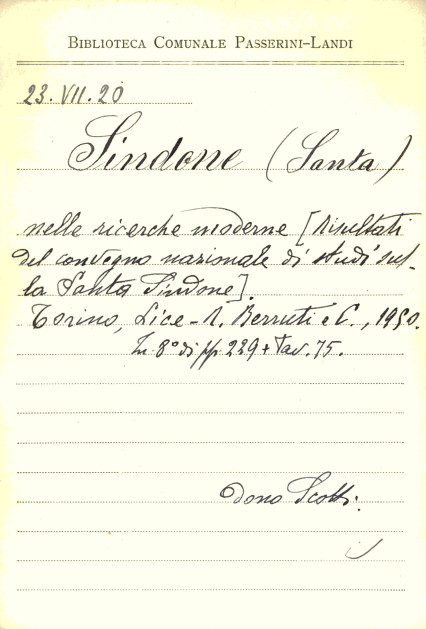 BIBLIOTECA COMUNALE PASSERINI-LANDI
23.VII.20
Sindone (Santa)
nelle ricerche moderne [Risultati
del convegno nazionale di studi sul-
la Santa Sindone].
Torino, Lice-R. Berruti e C., 1950.
In 8° di pp. 229 + Tav. 75.
Dono Scotti.